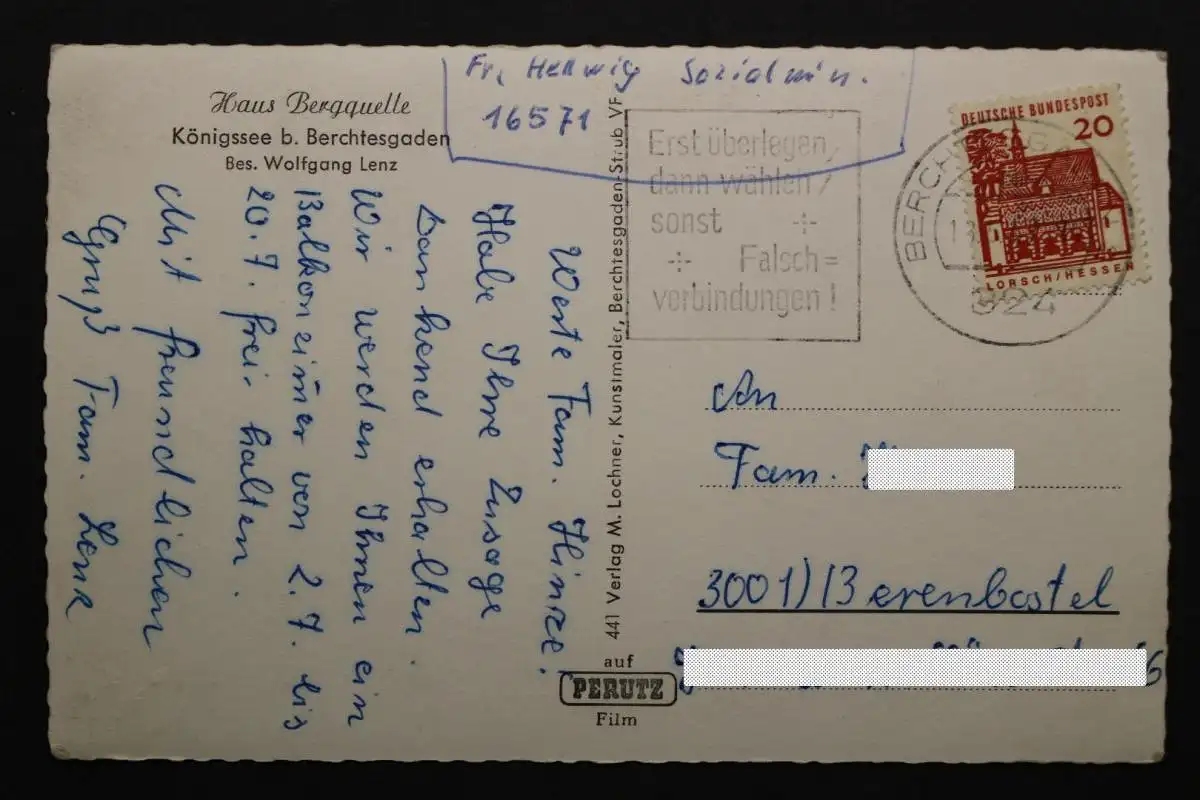 Haus Bergquelle
Königssee b. Berchtesgaden
Bes. Wolfgang Lenz
Fr. Hellwig Sozialmin.
16571
Werte Fam. Hinze!
Habe Ihre Zusage
Dankend erhalten.
Wir werden Ihnen ein
Balkonzimer von 2.7. bis
20.7. frei halten.
Mit freundlichen
Gruß Fam. Lenz
441 Verlag M. Lochner, Kunstmaler, Berchtesgaden-Strub VF
auf
PERUTZ
Film
Erst überlegen,
dann wählen,
sonst
Falsch=
verbindungen!
824
DEUTSCHE BUNDESPOST
20
LORSCH/HESSEN
An
Fam.
3001)Berenbostel